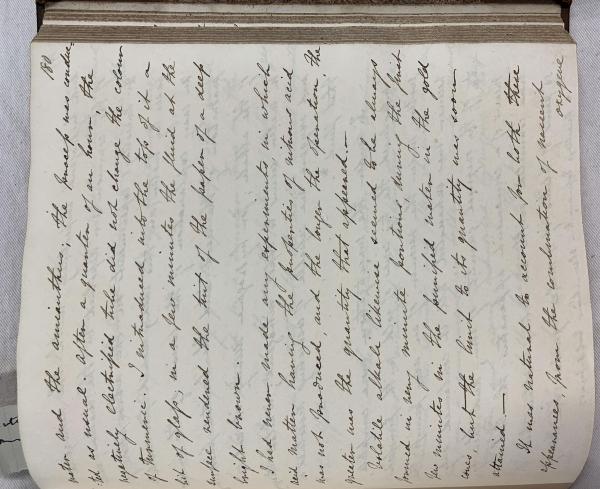 180
water and the amianthus; the process was conduc-
ted as usual. After a quarter of an hour the
negatively electrified tube did not change the colour
of turmeric. I introduced into the top of it a
bit of glass, in a few minutes the fluid at the
surface rendered the tint of the paper of a deep
bright brown.
I had never made any experiments in which
acid matter having the properties of nitrous acid
was not produced, and the longer the operation the
greater was the quantity that appeared.—
Volatile alkali likewise seemed to be always
formed in very minute portions, during the first
few minutes in the purified water in the gold
cones, but the limit to its quantity was soon
attained.—
It was natural to account for both these
appearances, from the combination of nascent
oxygene